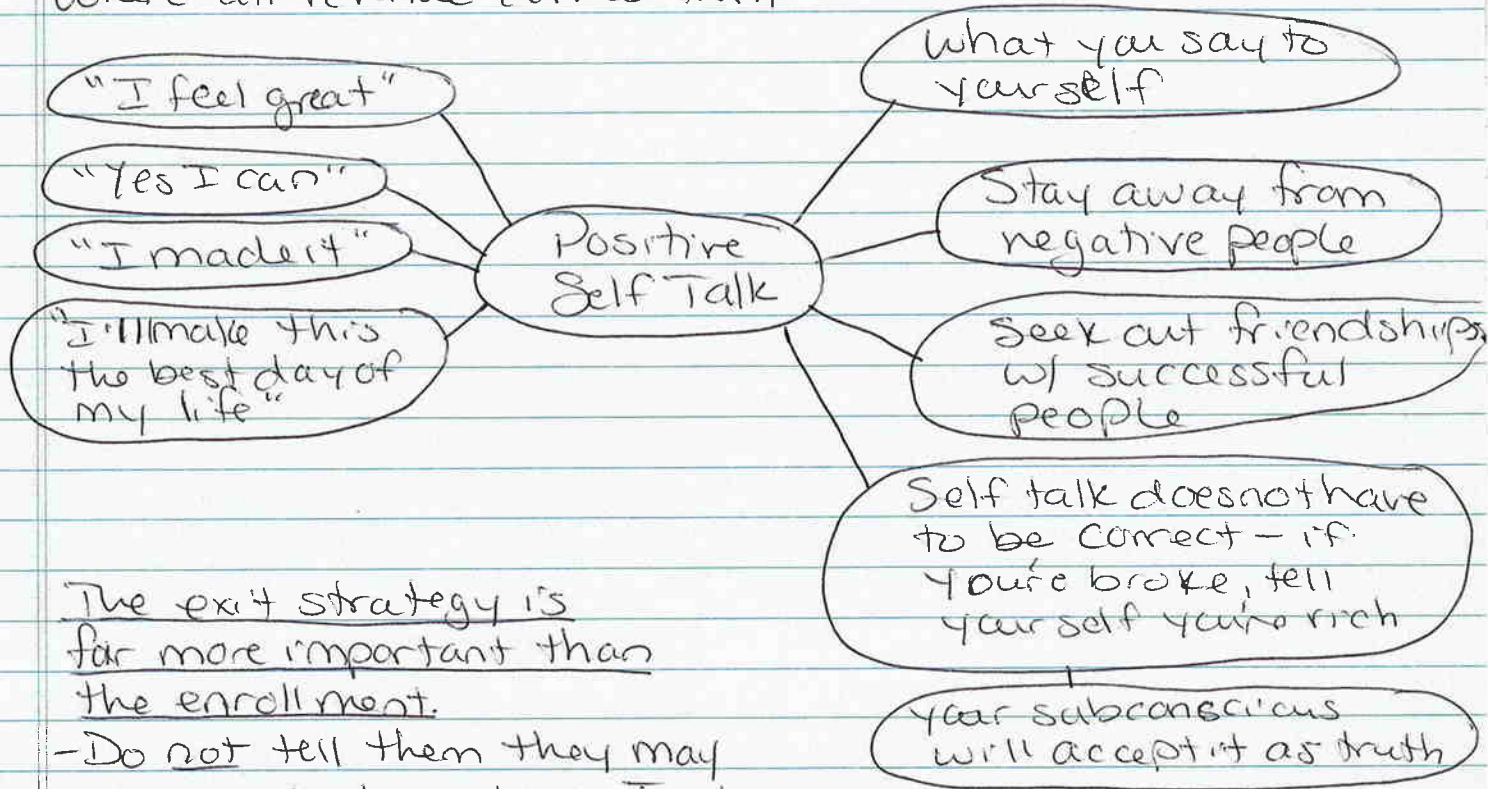 where all
"I feel great"
"Yes I can"
"I made it"
"I'll make this
the best day of
my life"
Positive
Self Talk
What you say to
yourself
Stay away from
negative people
Seek out friendships
w/ successful
people
Self talk does not have
to be correct - if
you're broke, tell
yourself you're rich
your subconscious
will accept it as truth
The exit strategy is
far more important than
the enrollment.
-Do not tell them they may